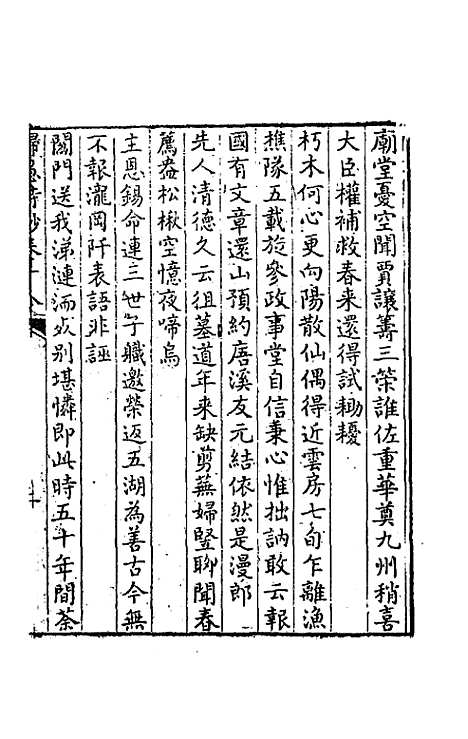 廟堂憂空聞賈讓籌三策誰佐重華奠九州稍喜
大臣權補救春来還得試耡耰
朽木何心更向陽散仙偶得近雲房七旬乍離漁
樵隊五載旋參政事堂自信秉心惟拙訥敢云報
國有文章還山預約唐溪友元結依然是漫郎
先人清德久云徂墓道年来缺剪蕪婦豎聊聞春
薦盎松楸空憶夜啼烏
主恩錫命連三世子職邀榮返五湖為善古今無
不報瀧岡阡表語非誣
閶門送我涕漣洏此别堪憐即此時五十年間荼
歸愚詩鈔卷十八
十